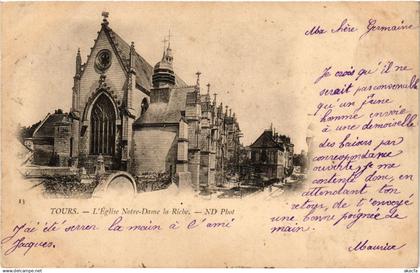 Ma Chère Germaine
Je crois qu'il ne
serait pas convenable
qu'un jeune
homme envoie
à une demoiselle
des baisers par
correspondance
ouverte je me
contente donc, en
attendant ton
retour, de t'envoyer
une bonne poignée de
main.
Maurice
13
TOURS. - L'Église Notre-Dame la Riche. - ND Phot
J'ai été serrer la main à l'ami
Jacques.